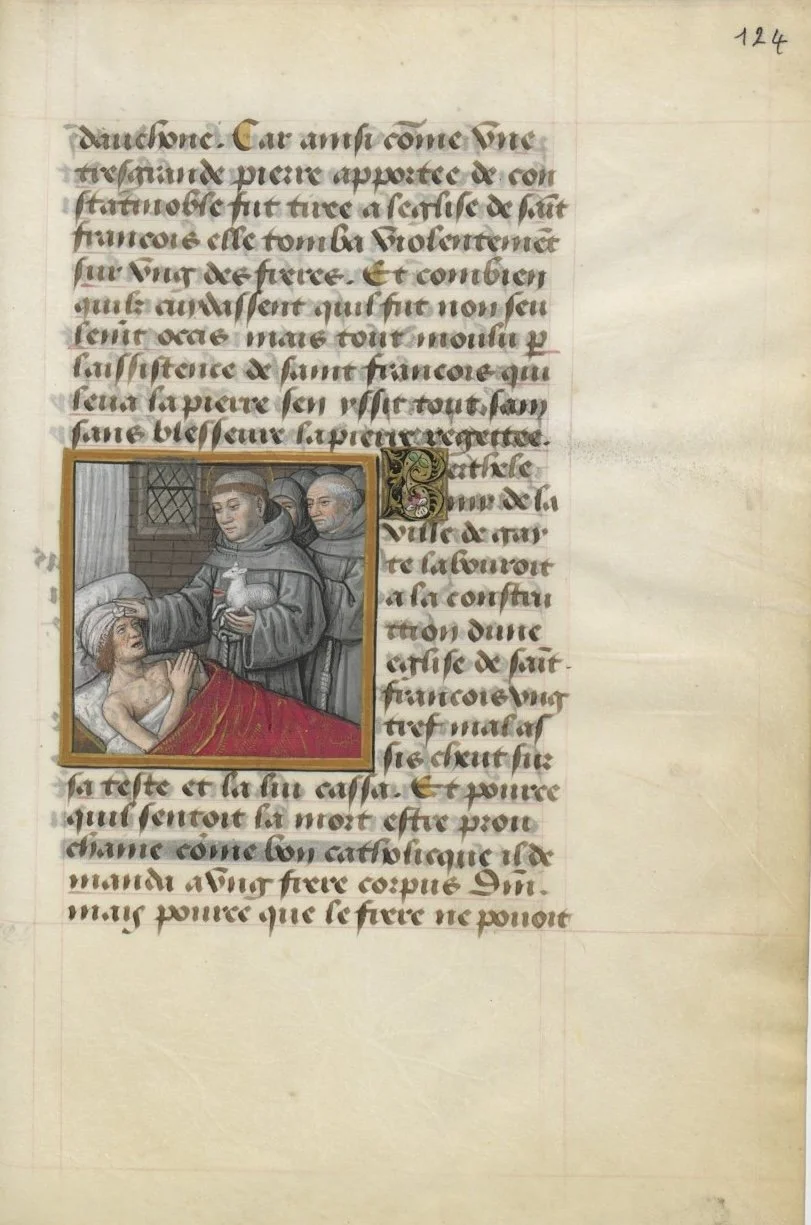 124
dauchone. Car ainsi cõme vne
tresgrande pierre apportee de con
statinoble fut tiree a leglise de sait̃
francois elle tomba violentemẽt
sur vng des freres. Et combien
quilz cuydassent quil fut non seu
lem̃t occis mais tout moulu p̱
laissistence de saint francois qui
leua la pierre sen yssit tout sain
sans blesseure la pierre regettee.
Berthele
mir de la
ville de gay
te labouroit
a la constru
ction dune
eglise de sait̃
francois vng
tref mal as
sis cheut sur
sa teste et la lui cassa. Et pource
quil sentoit la mort estre prou
chaine cõme bon catholicque il de
manda a vng frere corpus Dm̃.
mais pource que le frere ne pouoit